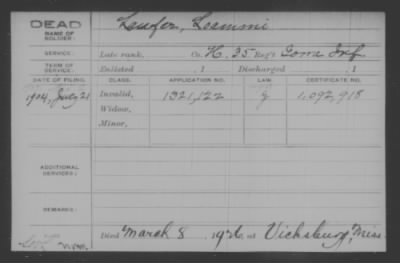 DEAD
NAME OF
SOLDIER:
SERVICE:
Late rank, Co. H, 35 Reg't Iowa Inf
TERM OF
SERVICE:
Enlisted , 1 Discharged , 1
DATE OF FILING. CLASS. APPLICATION NO. LAW. CERTIFICATE NO.
1904, July 21 Invalid, 1321,122 g 1,092,918
Widow,
Minor,
ADDITIONAL
SERVICES:
REMARKS:
Died March 8, 1926 at Vicksburg, Miss.